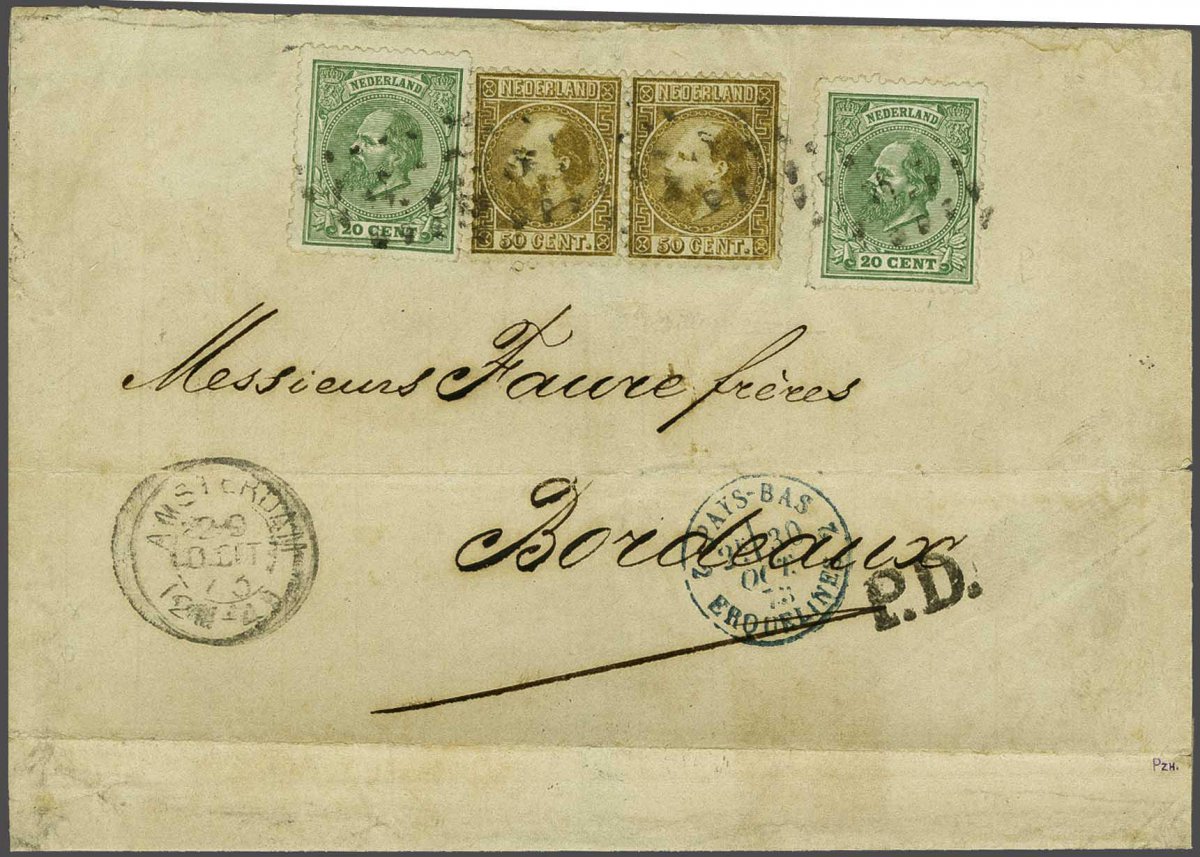 NEDERLAND
20 CENT
NEDERLAND
50 CENT.
NEDERLAND
50 CENT.
NEDERLAND
20 CENT
Messieurs Faure frères
AMSTERDAM
Bordeaux
PAYS-BAS
2 30 2
OCT.
ERQUELINES
P.D.
PZH.